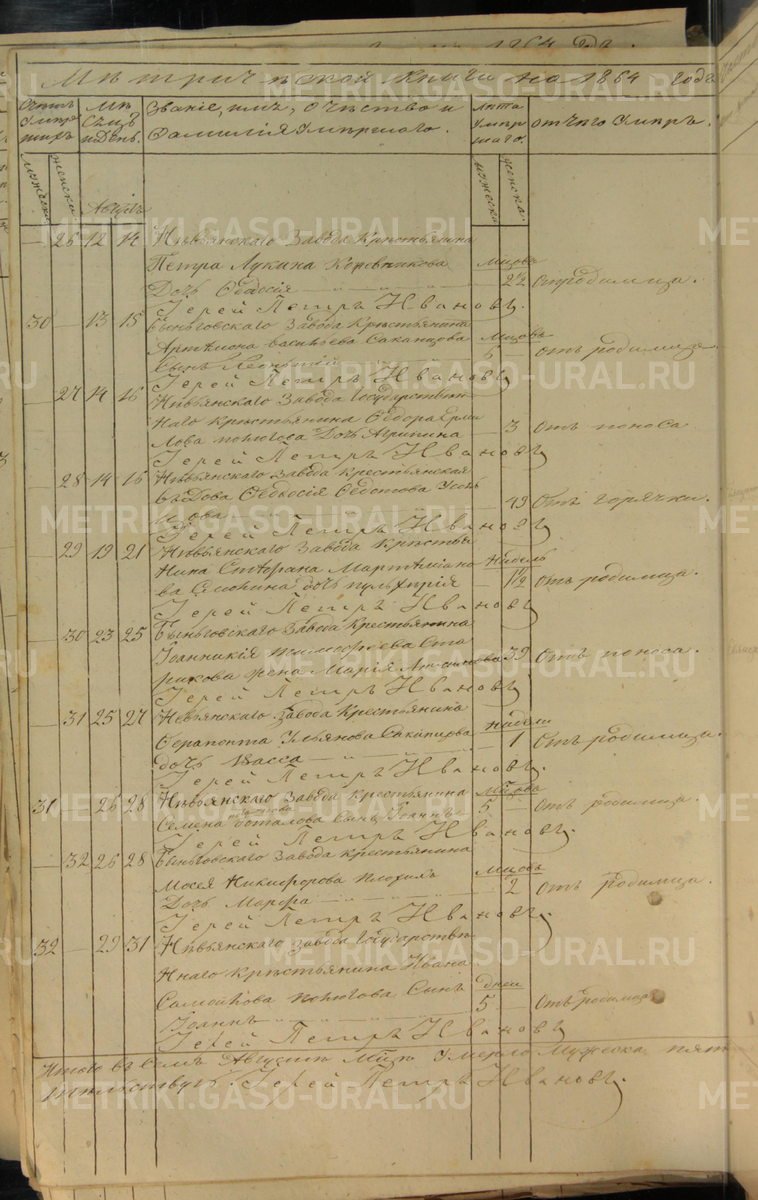 1864 года.
Метрической книги на 1864 года
Счетъ умершихъ Мѣсяцъ и день. Званіе, имя, отчество и Лѣта умершаго. отъ чего умеръ.
фамилія умершаго.
мужеска женска мужеска женска
Августъ
26 12 14 Невьянскаго Завода Крестьянина
Петра Лукина Кожевникова Мѣсяцовъ
Дочь Ѳедосія 2½ отъ родимца.
Іерей Петръ Ивановъ.
30 13 15 Быньговскаго Завода Крестьянина
Артемона Васильева Саканцова Мѣсяцовъ
Сынъ 5 отъ родимца
Іерей Петръ Ивановъ
27 14 16 Невьянскаго Завода Государствен
наго Крестьянина Ѳедора Ермо
лова Дочь Агрипина 3 отъ поноса
Іерей Петръ Ивановъ
28 14 16 Невьянскаго Завода Крестьянская
вѣдова Ѳедосія Ѳедотова 49 отъ горячки.
Іерей Петръ Ивановъ
29 19 21 Невьянскаго Завода Крестья
нина Стефана Недѣль
дочь Пульхирія 1½ отъ родимца.
Іерей Петръ Ивановъ
30 23 25 Быньговскаго Завода Крестьянина
Іоанникія Тимофеева Ста
рикова жена Марія 39 отъ поноса.
Іерей Петръ Ивановъ
31 25 27 Невьянскаго Завода Крестьянина
Ферапонта Ульянова Саканцова Недели
дочь Васса 1 отъ родимца.
Іерей Петръ Ивановъ
31 26 28 Невьянскаго Завода Крестьянина Мѣсяцовъ
Семена Боталова Сынъ Іоаннъ 5 отъ родимца.
Іерей Петръ Ивановъ
32 26 28 Быньговскаго Завода Крестьянина
Мосея Никифорова Плохихъ Мѣсяцовъ
Дочь Марфа 2 отъ родимца.
Іерей Петръ Ивановъ
32 29 31 Невьянскаго Завода Государствен
наго Крестьянина Ивана
Самойлова Сынъ Дней
Іоаннъ 5 отъ родимца
Іерей Петръ Ивановъ
Итого въ семъ Августѣ Мѣсяце умерло Мужеска
Іерей Петръ Ивановъ.
METRIKI.GASO-URAL.RU